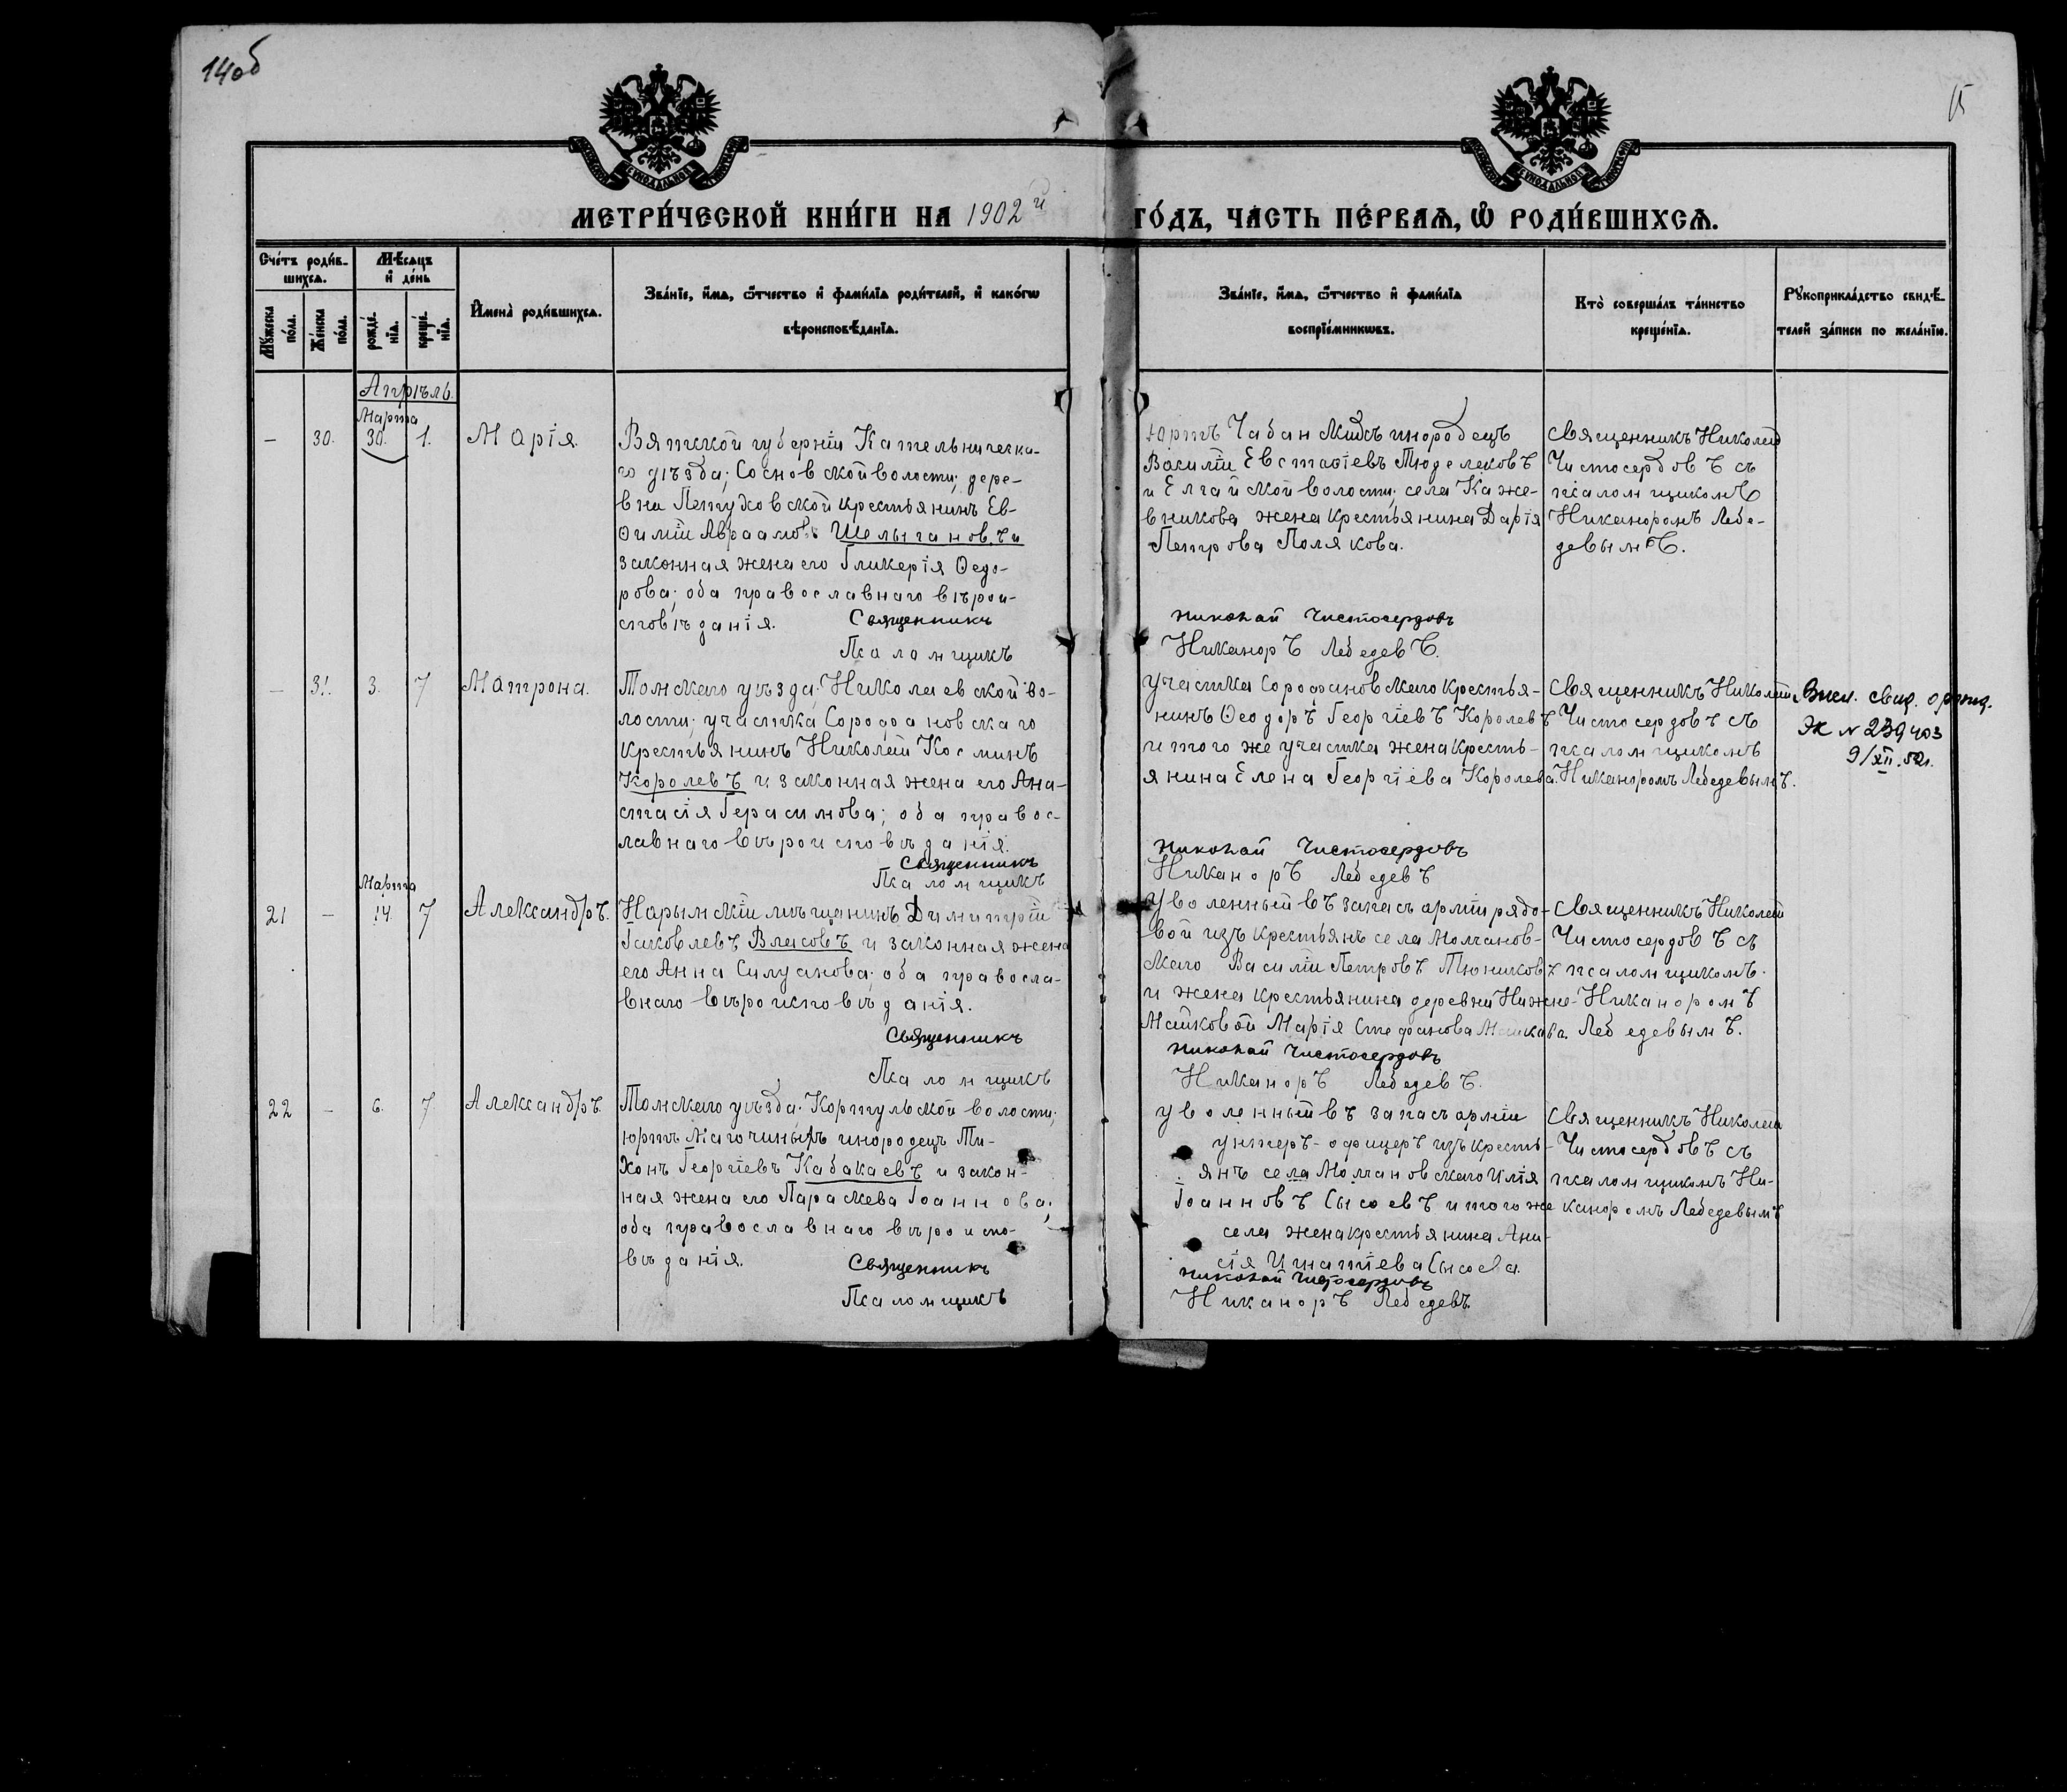 14об
15
МЕТРИ́ЧЕСКОЙ КНИ́ГИ НА 1902й ГО́ДЪ, ЧА́СТЬ ПЕ́РВАЯ, Ѡ҆ РОДИ́ВШИХСЯ.
Сче́тъ роди́в-
шихся.
Мѣ́сяцъ
и҆ де́нь
Мꙋ́жеска по́ла.
Же́нска по́ла.
рожде́-
нїѧ.
креще́-
нїѧ.
И҆мена̀ роди́вшихся.
Зва́нїе, и҆́мѧ, ѻ҆́тчество и҆ фами́лїѧ роди́телей, и҆ како́гѡ
вѣроисповѣ́данїѧ.
Зва́нїе, и҆́мѧ, ѻ҆́тчество и҆ фами́лїѧ
воспрїе́мникѡвъ.
Кто̀ соверша́лъ та́инство
креще́нїѧ.
Рꙋкоприкла́дство свидѣ́-
телей за́писи по жела́нїю.
Апрѣль.
Марта
— 30. 30. 1. Марія.
Вятской губерніи Котельническа-
го уѣзда; Сосновской волости; дере-
вни Петуховской крестьянинъ Ев-
ѳимій Авраамовъ Шелыгановъ и
законная жена его Гликерія Ѳедо-
рова; оба православнаго вѣрои-
сповѣданія.
Священникъ
Псаломщикъ
юртъ Чабан инородецъ
Василій Евстаѳіевъ Тюделековъ
и Елгайской волости; села Каже-
вникова жена крестьянина Дарія
Петрова Полякова.
Николай Чистосердовъ
Никаноръ Лебедевъ.
Священникъ Николай
Чистосердовъ съ
псаломщикомъ
Никаноромъ Лебе-
девымъ.
— 31. 3. 7 Матрона.
Томскаго уѣзда; Николаевской во-
лости; участка Сорофановскаго
крестьянинъ Николай Косминъ
Королевъ и законная жена его Ана-
стасія Герасимова; оба правос-
лавнаго вѣроисповѣданія.
Священникъ
Псаломщикъ
участка Сорофановскаго крестья-
нинъ Ѳеодоръ Георгіевъ Королевъ
и того же участка жена кресть-
янина Елена Георгіева Королева.
Николай Чистосердовъ
Никаноръ Лебедевъ
Священникъ Николай
Чистосердовъ съ
псаломщикомъ
Никаноромъ Лебедевымъ.
свид. о рожд.
№ 239403
9/XII.
Марта
21 — 14. 7 Александръ.
Нарымскій мѣщанинъ Димитрій
Іаковлевъ Власовъ и законная жена
его Анна Силуанова; оба правосла-
внаго вѣроисповѣданія.
Священникъ
Псаломщикъ
Уволенный въ запасъ арміи рядо-
вой изъ крестьянъ села Молчанов-
скаго Василій Петровъ Тюниковъ
и жена крестьянина деревни Нижне-
Майковой Марія Стефанова Майкова.
Николай Чистосердовъ
Никаноръ Лебедевъ.
Священникъ Николай
Чистосердовъ съ
псаломщикомъ
Никаноромъ
Лебедевымъ.
22 — 6. 7. Александръ
Томскаго уѣзда; Кортульской волости;
юртъ инородецъ Ти-
хонъ Георгіевъ Кабакаевъ и закон-
ная жена его Параскева Іоаннова;
оба православнаго вѣроиспо-
вѣданія.
Священникъ
Псаломщикъ
уволенный въ запасъ арміи
унтеръ-офицеръ изъ кресть-
янъ села Молчановскаго Илія
Іоанновъ Сысоевъ и того же
села жена крестьянина Ани-
сія Игнатіева Сысоева.
Николай Чистосердовъ
Никаноръ Лебедевъ.
Священникъ Николай
Чистосердовъ съ
псаломщикомъ Ни-
каноромъ Лебедевымъ